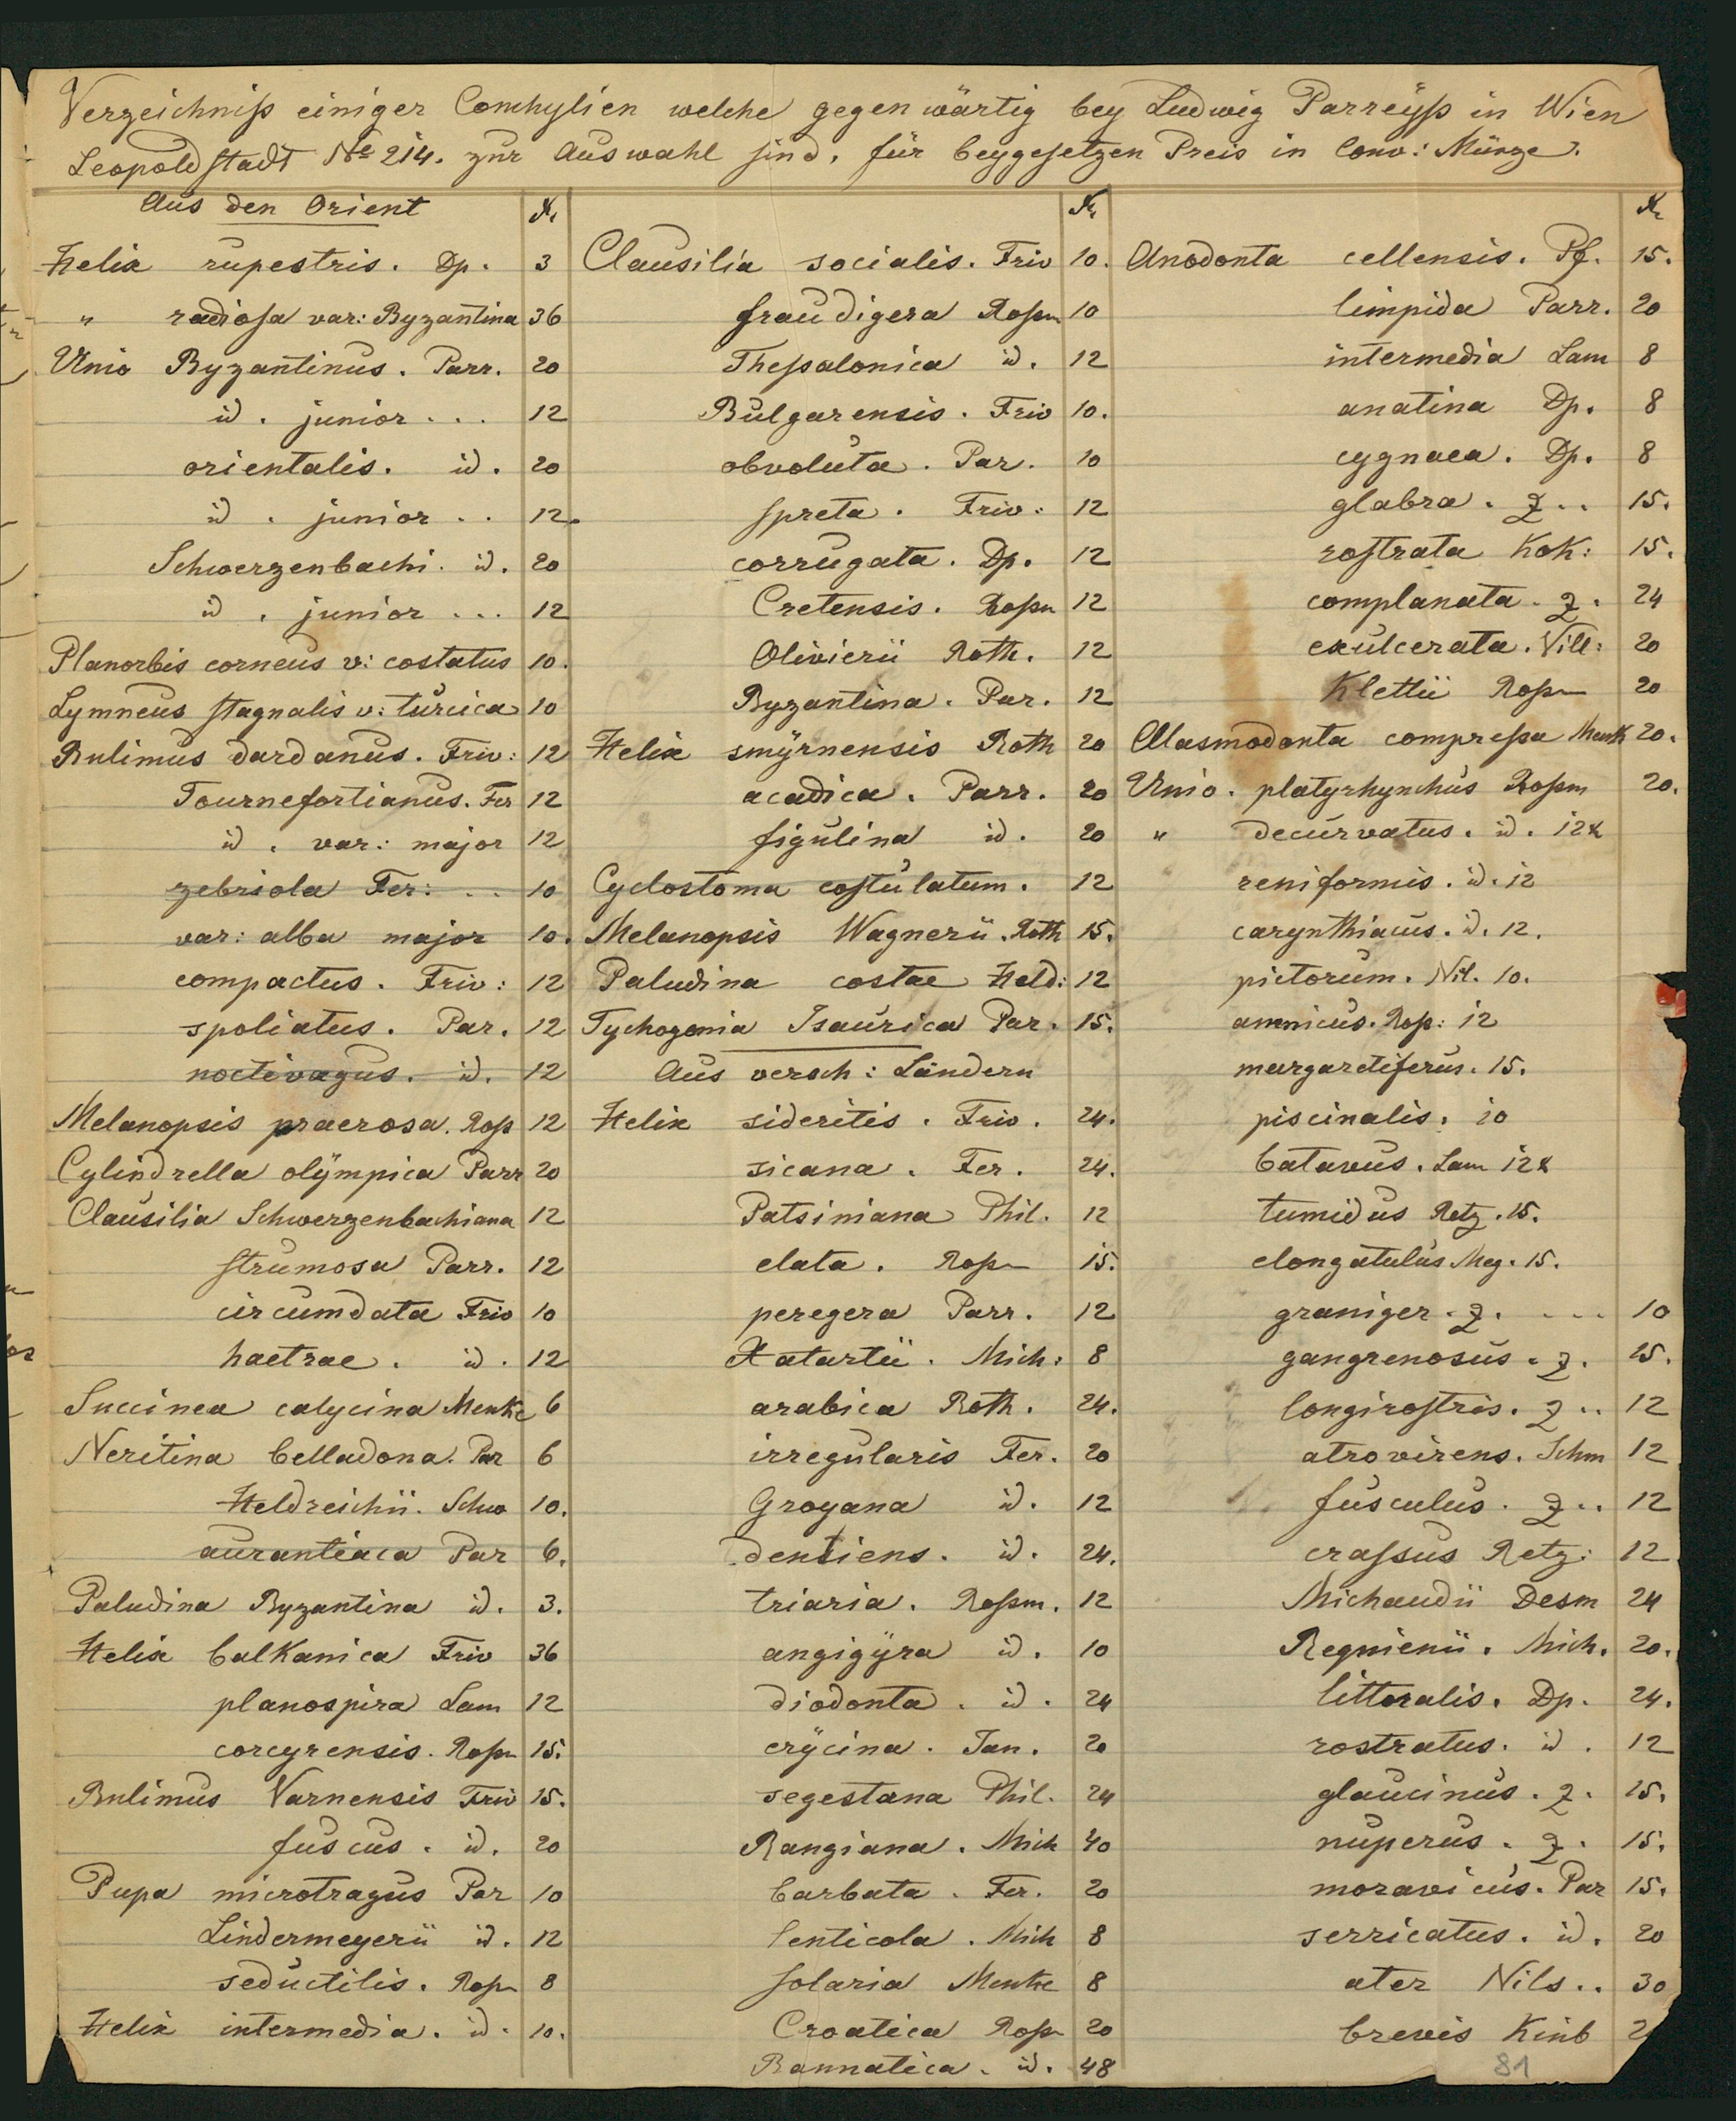 Verzeichniß einiger Conchylien welche gegenwärtig bey Ludwig Parreÿß in Wien
Leopoldstadt No 214. zur Auswahl sind, für beygesetzen Preis in Conv: Münze.
Aus den Orient Kr
Helix rupestris. Dp. 3
" radiosa var: Byzantina 36
Unio Byzantinus. Parr. 20
id. junior... 12
orientalis. id. 20
id. junior.. 12.
Schwerzenbachi. id. 20
id. junior... 12
Planorbis corneus v: costatus 10.
Lymneus stagnalis v: turcica 10
Bulimus dardanus. Friv: 12
Tournefortianus. Fer 12
id. var: major 12
zebriola Fer:.. 10
var: alba major 10.
compactus. Friv: 12
spoliatus. Par. 12
noctivagus. id. 12
Melanopsis praerosa. Roß 12
Cylindrella olÿmpica Parr 20
Clausilia Schwerzenbachiana 12
strumosa Parr. 12
circumdata Friv 10
haetrae. id. 12
Succinea calycina Menke 6
Neritina belladona. Par 6
Heldreichii. Schw 10.
aurantiaca Par 6.
Paludina Byzantina id. 3.
Helix balkanica Friv 36
planospira Lam 12
corcyrensis. Roßm 15.
Bulimus Varnensis Friv 15.
fuscus. id. 20
Pupa microtragus Par 10
Lindermeyerii id. 12
seductilis. Roßm 8
Helix intermedia. id. 10.
Kr
Clausilia socialis. Friv 10.
fraudigera Roßm 10
Theßalonica id. 12
Bulgarensis. Friv 10.
obvoluta. Par. 10
spreta. Friv: 12
corrugata. Dp. 12
Cretensis. Roßm 12
Olivierii Roth. 12
Byzantina. Par. 12
Helix smÿrnensis Roth 20
acadica. Parr. 20
figulina id. 20
Cyclostoma costulatum. 12
Melanopsis Wagnerii. Roth 15.
Paludina costae Held: 12
Tychogonia Isaurica Par. 15.
Aus versch: Ländern
Helix sideritis. Friv. 24.
sicana. Fer. 24.
Patsiniana Phil. 12
elata. Roßm 15.
peregera Parr. 12
Xatartii. Mich: 8
arabica Roth. 24.
irregularis Fer. 20
Groyana id. 12
dentiens. id. 24.
triaria. Roßm. 12
angigÿra id. 10
diodonta. id. 24
erÿcina. Jan. 20
segestana Phil. 24
Rangiana. Mich 40
barbata. Fer. 20
lenticola. Mich 8
solaria Menke 8
Croatica Roßm 20
Bannatica. id. 48
Kr
Anodonta cellensis. Pf. 15.
limpida Parr. 20
intermedia Lam 8
anatina Dp. 8
cygnaea. Dp. 8
glabra. Z.. 15.
rostrata Kok: 15.
complanata. Z. 24
exulcerata. Vill: 20
Klettii Roßm 20
Alasmodonta compreßa Menk 20.
Unio. platyrhynchus Roßm 20.
" decurvatus. id. 12x
reniformis. id. 12
carynthiacus. id. 12.
pictorum. Nil. 10.
amnicus. Roß: 12
margaretiferus. 15.
piscinalis. 10
batavus. Lam 12x
tumidus Retz. 15.
elongatulus Meg. 15.
graniger. Z.... 10
gangrenosus. Z. 15.
longirostris. Z.. 12
atrovirens. Schm 12
fusculus. Z.. 12
craßus Retz: 12
Michaudii Desm 24
Requienii. Mich. 20.
littoralis. Dp. 24.
rostratus. id. 12
glaucinus. Z. 15.
nuperus. Z. 15.
moravicus. Par 15.
serricatus. id. 20
ater Nils.. 30
brevis Kinb
81